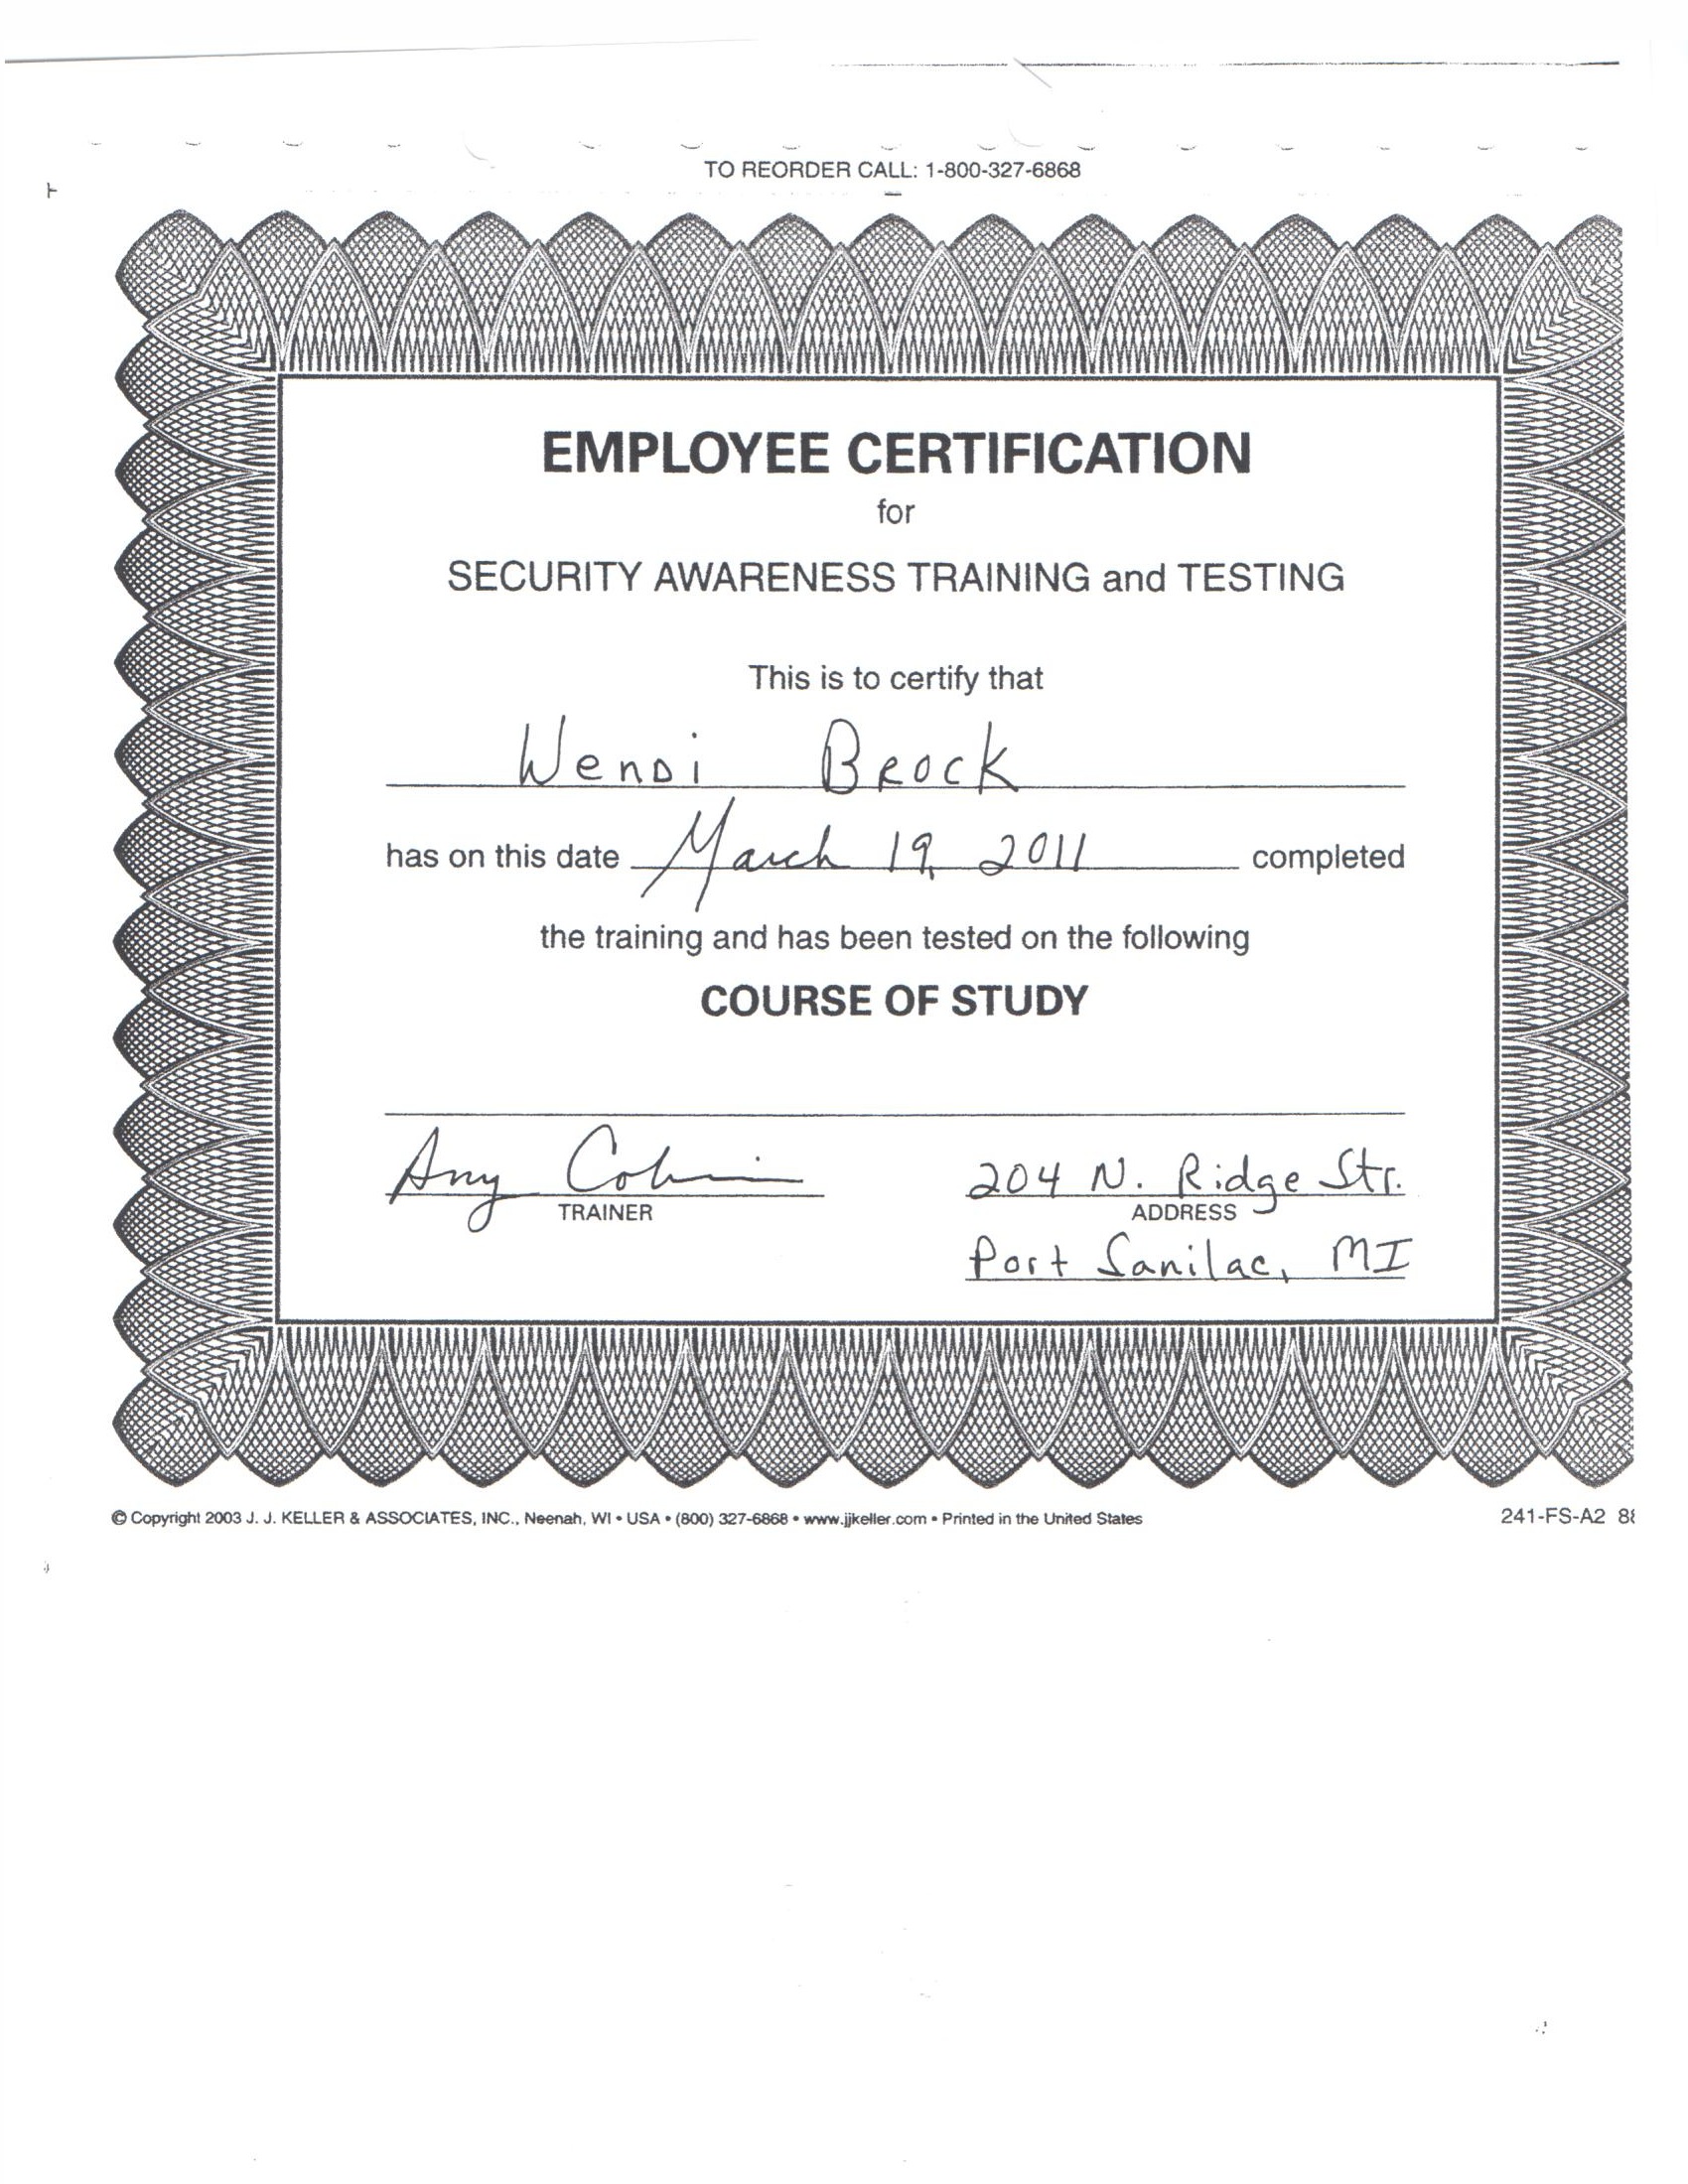 TO REORDER CALL: 1-800-327-6868
EMPLOYEE CERTIFICATION
for
SECURITY AWARENESS TRAINING and TESTING
This is to certify that
Wendi Brock
has on this date March 19, 2011 completed
the training and has been tested on the following
COURSE OF STUDY
204 N. Ridge Str.
TRAINER ADDRESS
Port Sanilac, MI
© Copyright 2003 J. J. KELLER & ASSOCIATES, INC., Neenah, WI • USA • (800) 327-6868 • www.jjkeller.com • Printed in the United States 241-FS-A2